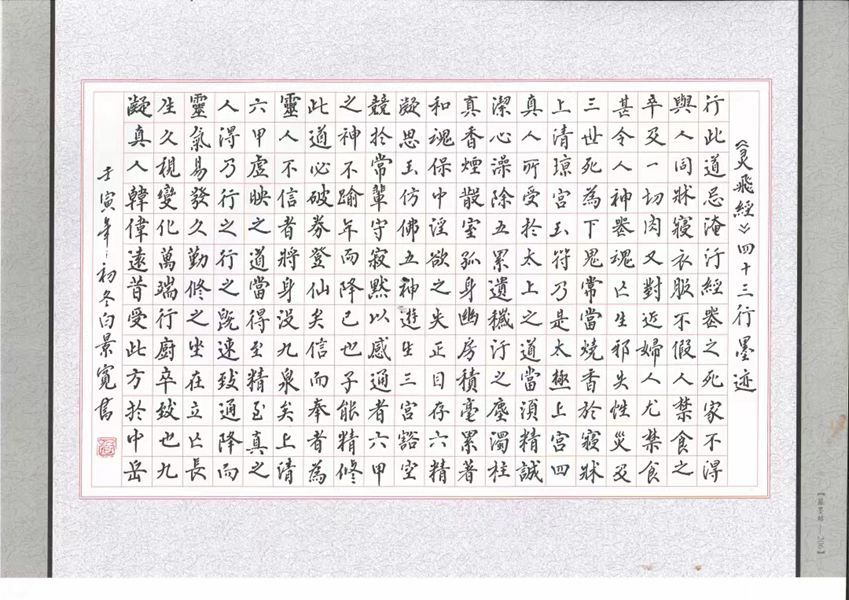 《灵飛經》四十三行墨迹
行此道忌淹汙經喪之死家不得
與人同牀寢衣服不假人禁食之
辛及一切肉又對近婦人尤禁食
甚令人神喪魂亡生邪失性災及
三世死為下鬼常當燒香於寢牀
上清瓊宮玉符乃是太極上宮四
真人所受於太上之道當須精誠
潔心澡除五累遺穢汙之塵濁杜
真香煙散室孤身幽房積毫累著
和魂保中淫欲之失正目存六精
凝思玉仿佛五神遊生三宮豁空
競於常輩守寂默以感通者六甲
之神不踰年而降已也子能精修
此道必破券登仙矣信而奉者為
靈人不信者將身沒九泉矣上清
六甲虛映之道當得至精至真之
人得乃行之行之既速致通降而
靈氣易發久勤修之坐在立亡長
生久視變化萬端行廚卒致也九
凝真人韓偉遠昔受此方於中岳
壬寅年初冬白景寬書
206